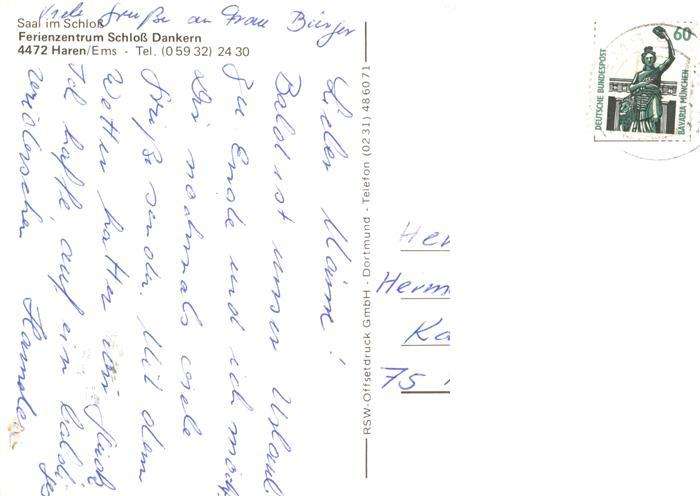 Viele Grüße an Frau Bürger
Saal im Schloß
Ferienzentrum Schloß Dankern
4472 Haren/Ems · Tel. (0 59 32) 24 30
Lieber
Bald ist unser Urlaub
zu Ende und ich möch
Dir nochmals viele
Grüße senden. Mit dem
Wetter hatten wir Glück
Ich hoffe auf ein baldiges
Wiedersehen
RSW-Offsetdruck GmbH · Dortmund · Telefon (02 31) 48 60 71
DEUTSCHE BUNDESPOST
60
BAVARIA MÜNCHEN
Her
Herm
Ka
75